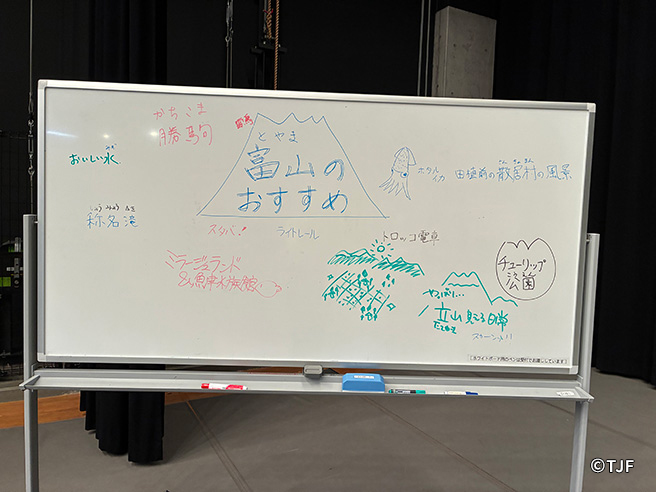 かちこま
勝駒
とやま
富山の
おすすめ
おいしい水
みず
ホタル
イカ
田植前の散居村の風景
さんきょそん
しょうみょうだき
称名滝
スタバ!
ライトレール
トロッコ電車
ミラージュランド
&魚津水族館
チューリップ
公園
やっぱり…
立山見える日常
ホワイトボード用のペンは受付でお渡ししています
©TJF